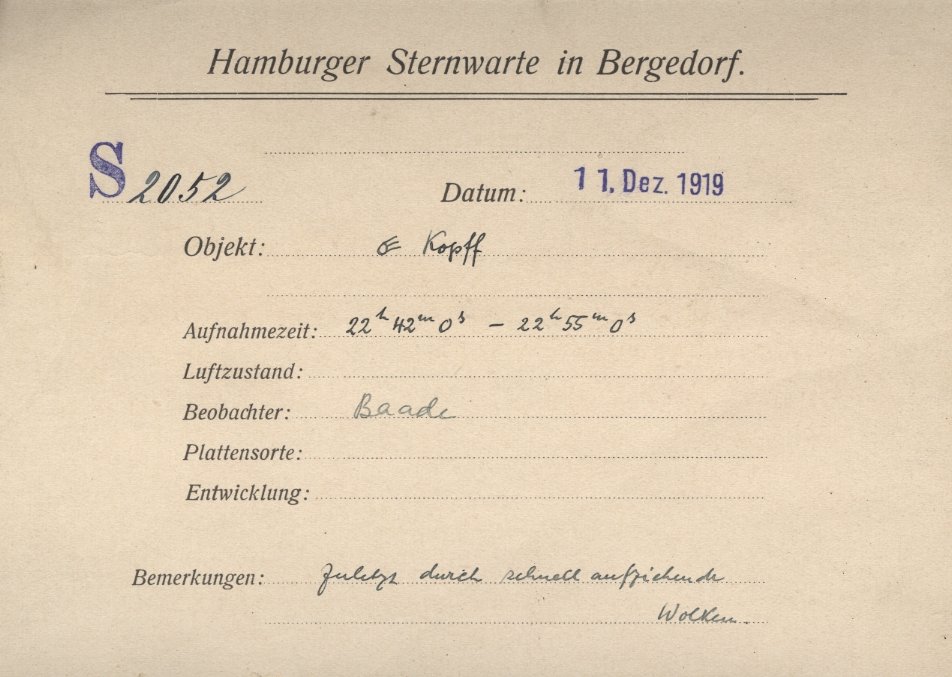 Hamburger Sternwarte in Bergedorf.
S 2052
Datum: 11. Dez. 1919
Objekt: Kopff
Aufnahmezeit: 22ʰ42ᵐ0ˢ – 22ʰ55ᵐ0ˢ
Luftzustand:
Beobachter: Baade
Plattensorte:
Entwicklung:
Bemerkungen: Zuletzt durch schnell aufziehende
Wolken.